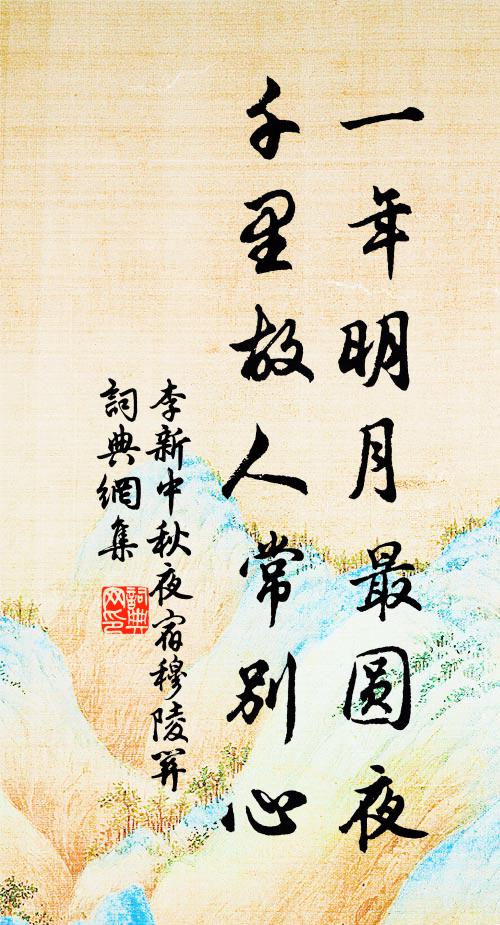 一年明月最圓夜
千里故人常別心
李新中秋夜宿穆陵关
詞典網集
詞典网印